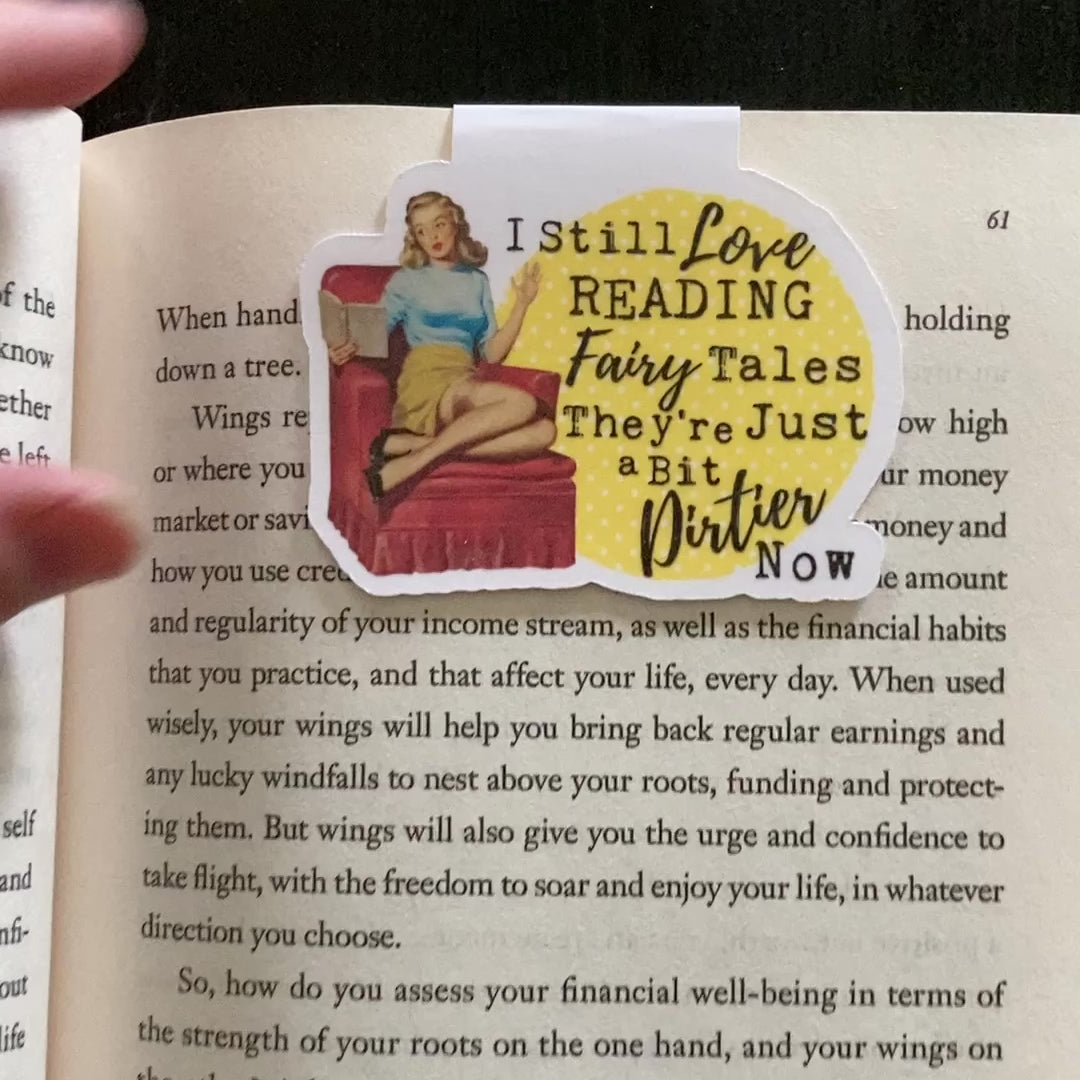 61
I Still Love
READING
Fairy Tales
They're Just
a Bit
Dirtier
Now
of the
know
left
self
and
out
life
When hand holding
down a tree.
Wings high
or where you money
market or money and
how you use amount
and regularity of your income stream, as well as the financial habits
that you practice, and that affect your life, every day. When used
wisely, your wings will help you bring back regular earnings and
any lucky windfalls to nest above your roots, funding and protect-
ing them. But wings will also give you the urge and confidence to
take flight, with the freedom to soar and enjoy your life, in whatever
direction you choose.
So, how do you assess your financial well-being in terms of
the strength of your roots on the one hand, and your wings on